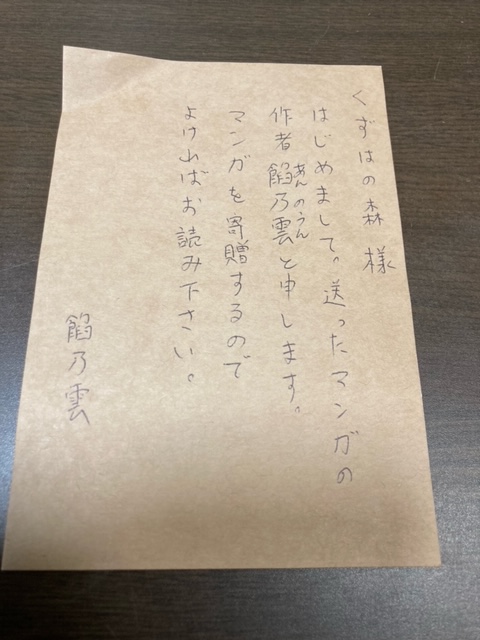 くずはの森 様
はじめまして。送ったマンガの
作者餡乃雲と申します。
あんのうん
マンガを寄贈するので
よければお読み下さい。
餡乃雲